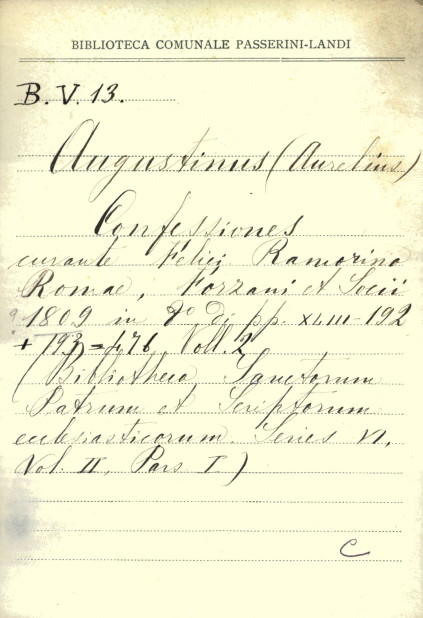 BIBLIOTECA COMUNALE PASSERINI-LANDI
B. V. 13.
Augustinus (Aurelius)
Confessiones
curante Felici Ramorino
Romae, Forzani et Socii
? 1809 in 8° di pp. XLIII-192
+ 193) = 476 Voll. 2
(Bibliotheca Sanctorum
Patrum et Scriptorum
ecclesiasticorum. Series VI,
Vol. II, Pars I)
C